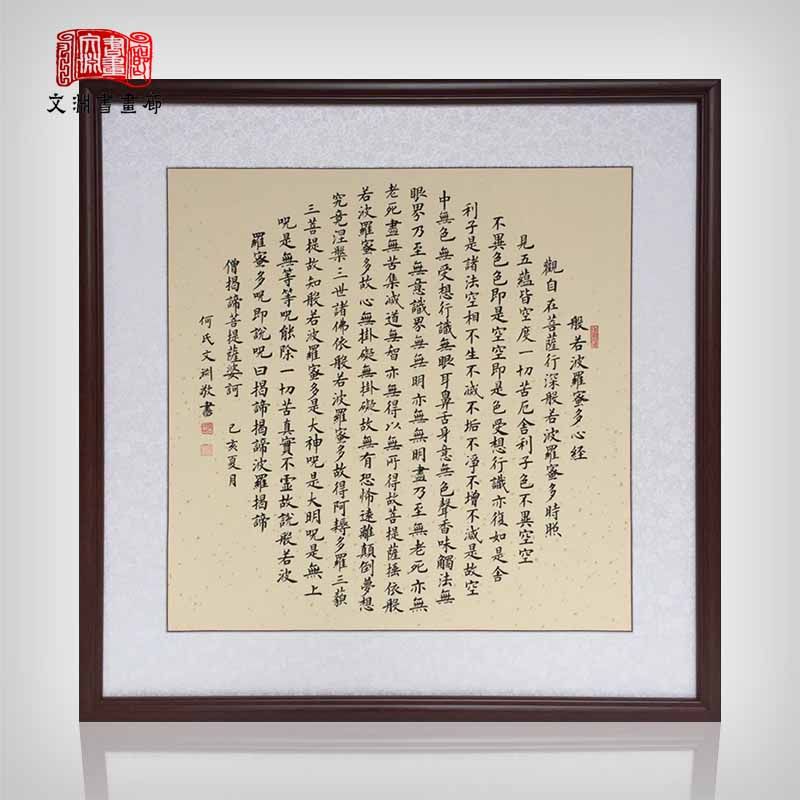 文渊書畫廊
般若波羅蜜多心経
觀自在菩薩行深般若波羅蜜多時照
見五蘊皆空度一切苦厄舍利子色不異空空
不異色色即是空空即是色受想行識亦復如是舍
利子是諸法空相不生不滅不垢不净不增不減是故空
中無色無受想行識無眼耳鼻舌身意無色聲香味觸法無
眼界乃至無意識界無無明亦無無明盡乃至無老死亦無
老死盡無苦集滅道無智亦無得以無所得故菩提薩埵依般
若波羅蜜多故心無掛礙無掛礙故無有恐怖遠離顛倒夢想
究竟涅槃三世諸佛依般若波羅蜜多故得阿耨多羅三藐
三菩提故知般若波羅蜜多是大神呪是大明呪是無上
呪是無等等呪能除一切苦真實不虛故說般若波
羅蜜多呪即說呪曰揭諦揭諦波羅揭諦
僧揭諦菩提薩婆訶 己亥夏月
何氏文渊敬書